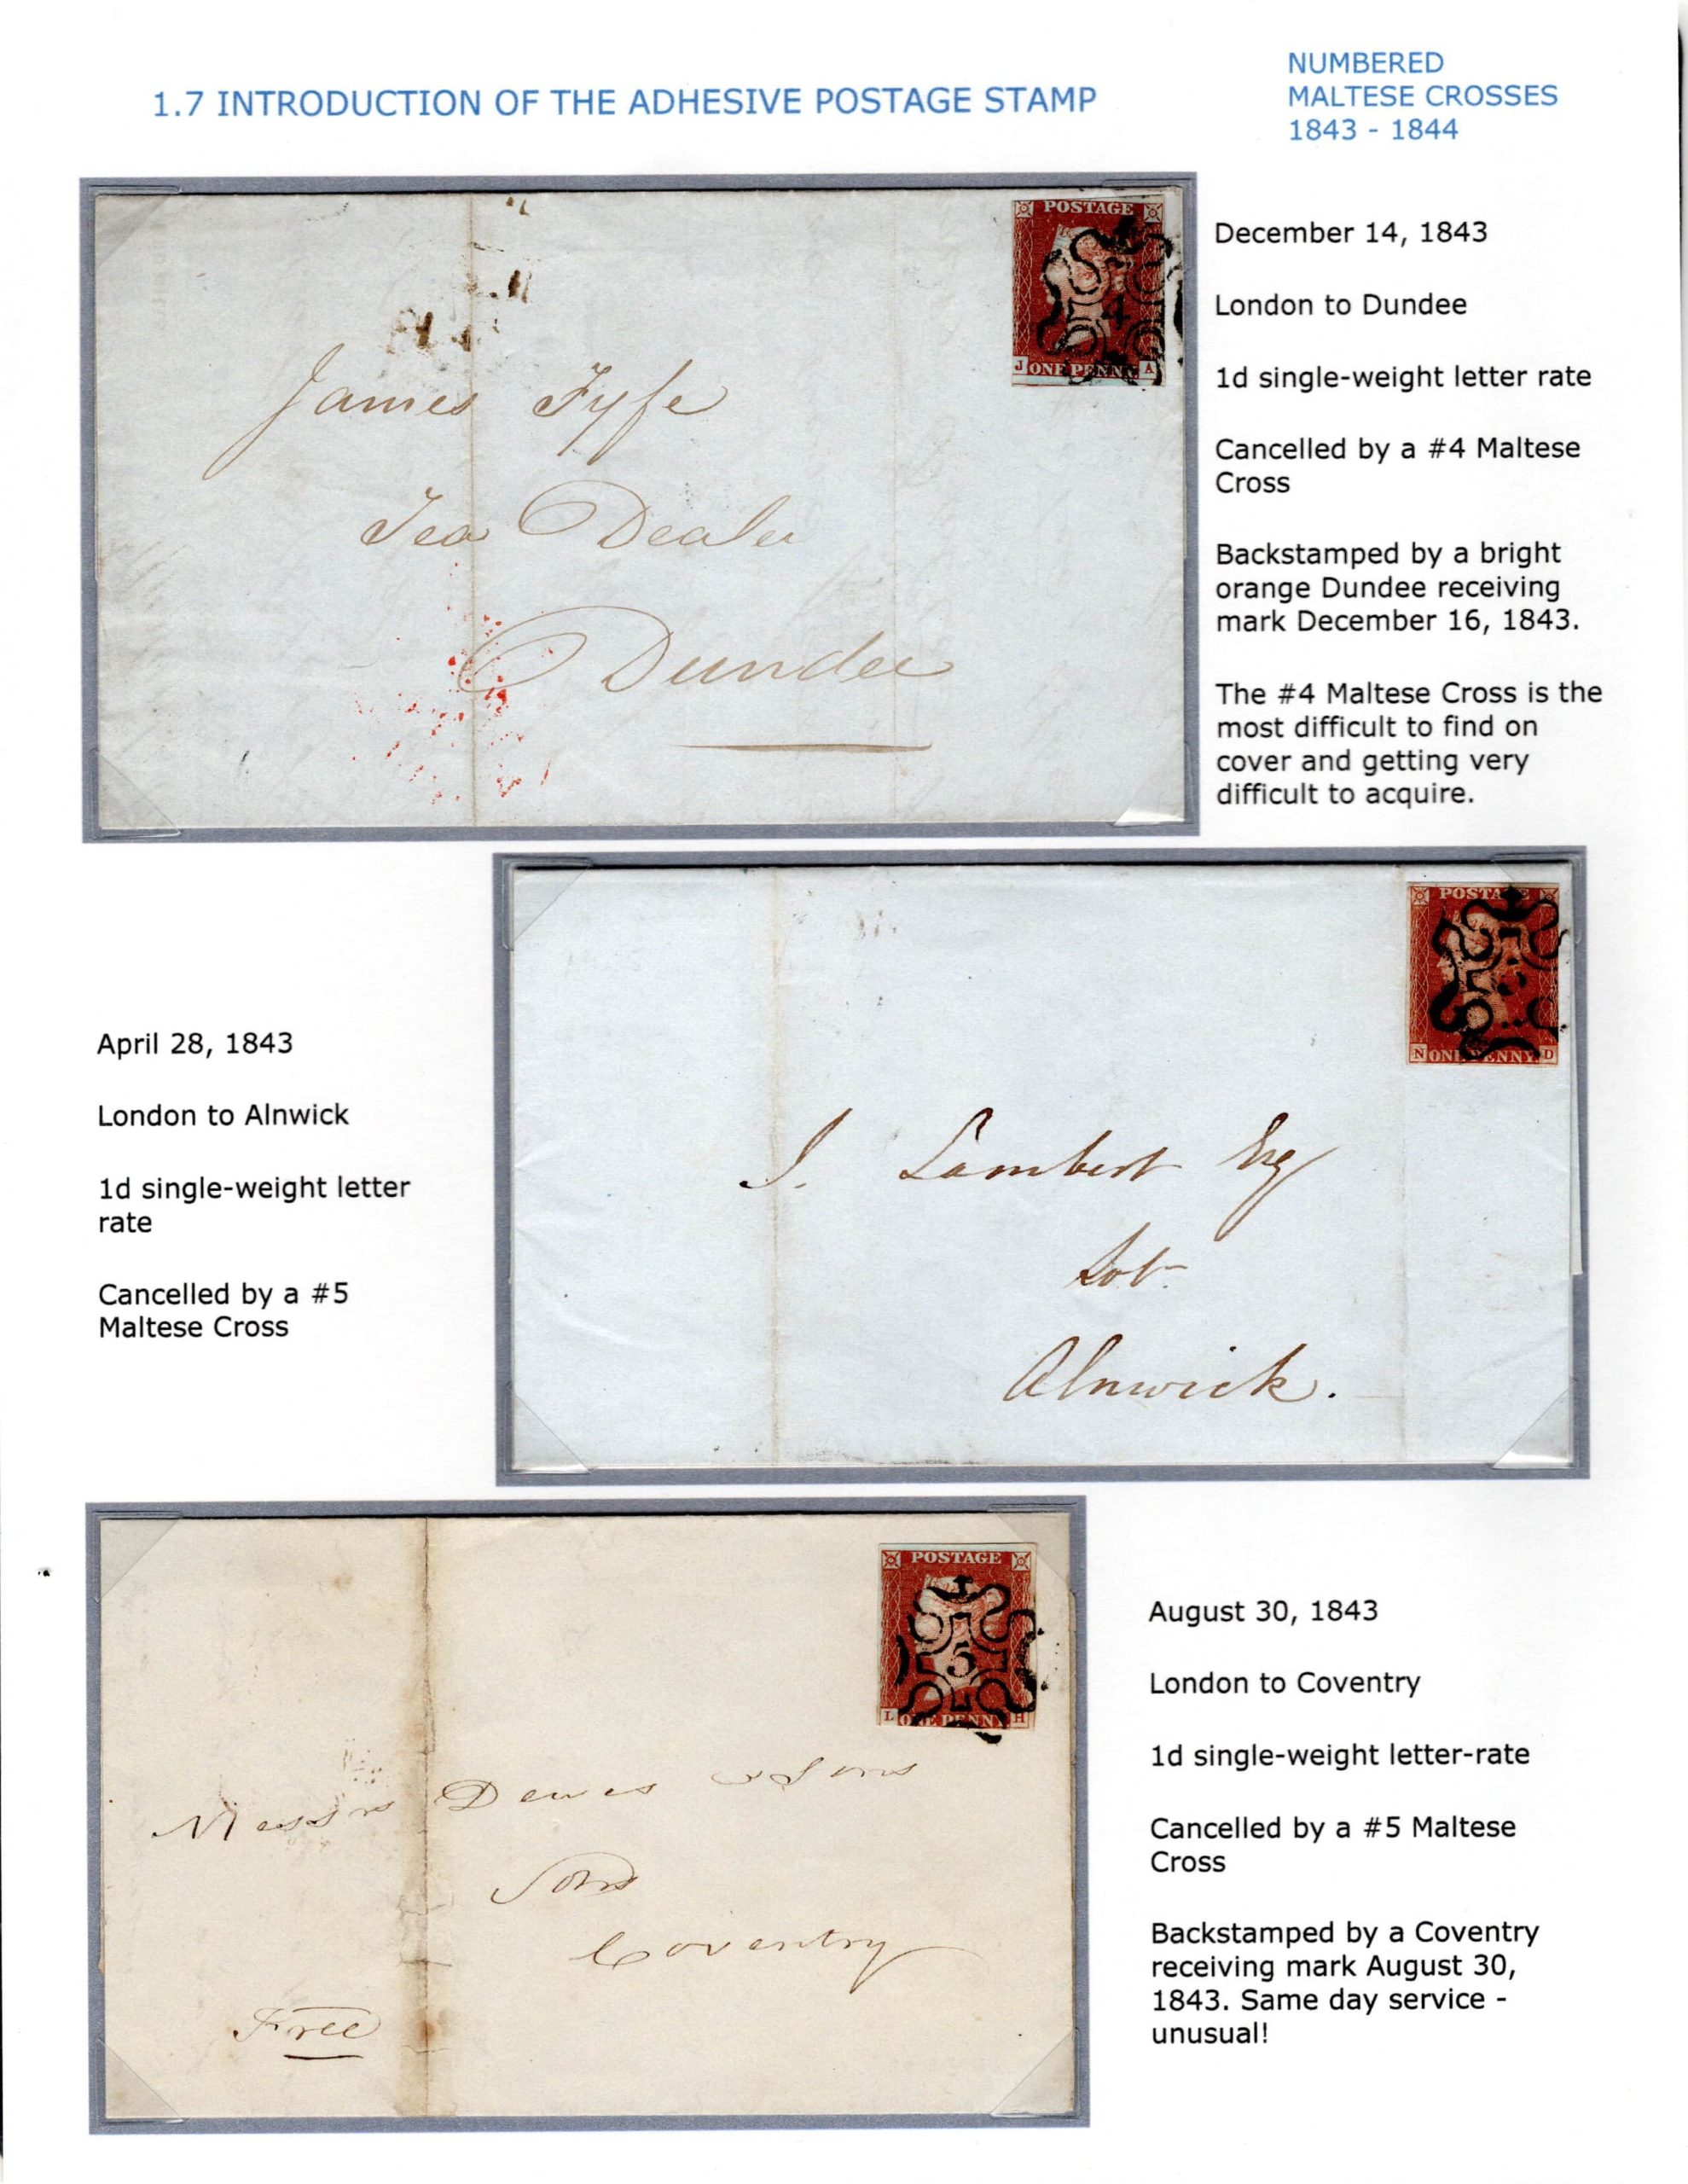 1.7 INTRODUCTION OF THE ADHESIVE POSTAGE STAMP
NUMBERED
MALTESE CROSSES
1843 - 1844
POSTAGE
4
J ONE PENNY A
James Fyfe
Tea Dealer
Dundee
December 14, 1843
London to Dundee
1d single-weight letter rate
Cancelled by a #4 Maltese
Cross
Backstamped by a bright
orange Dundee receiving
mark December 16, 1843.
The #4 Maltese Cross is the
most difficult to find on
cover and getting very
difficult to acquire.
April 28, 1843
London to Alnwick
1d single-weight letter
rate
Cancelled by a #5
Maltese Cross
POSTAGE
N ONE PENNY D
J. Lambert Esq
Solr
Alnwick.
POSTAGE
5
L ONE PENNY H
Messrs Dewes & Sons
Solrs
Coventry
Free
August 30, 1843
London to Coventry
1d single-weight letter-rate
Cancelled by a #5 Maltese
Cross
Backstamped by a Coventry
receiving mark August 30,
1843. Same day service -
unusual!